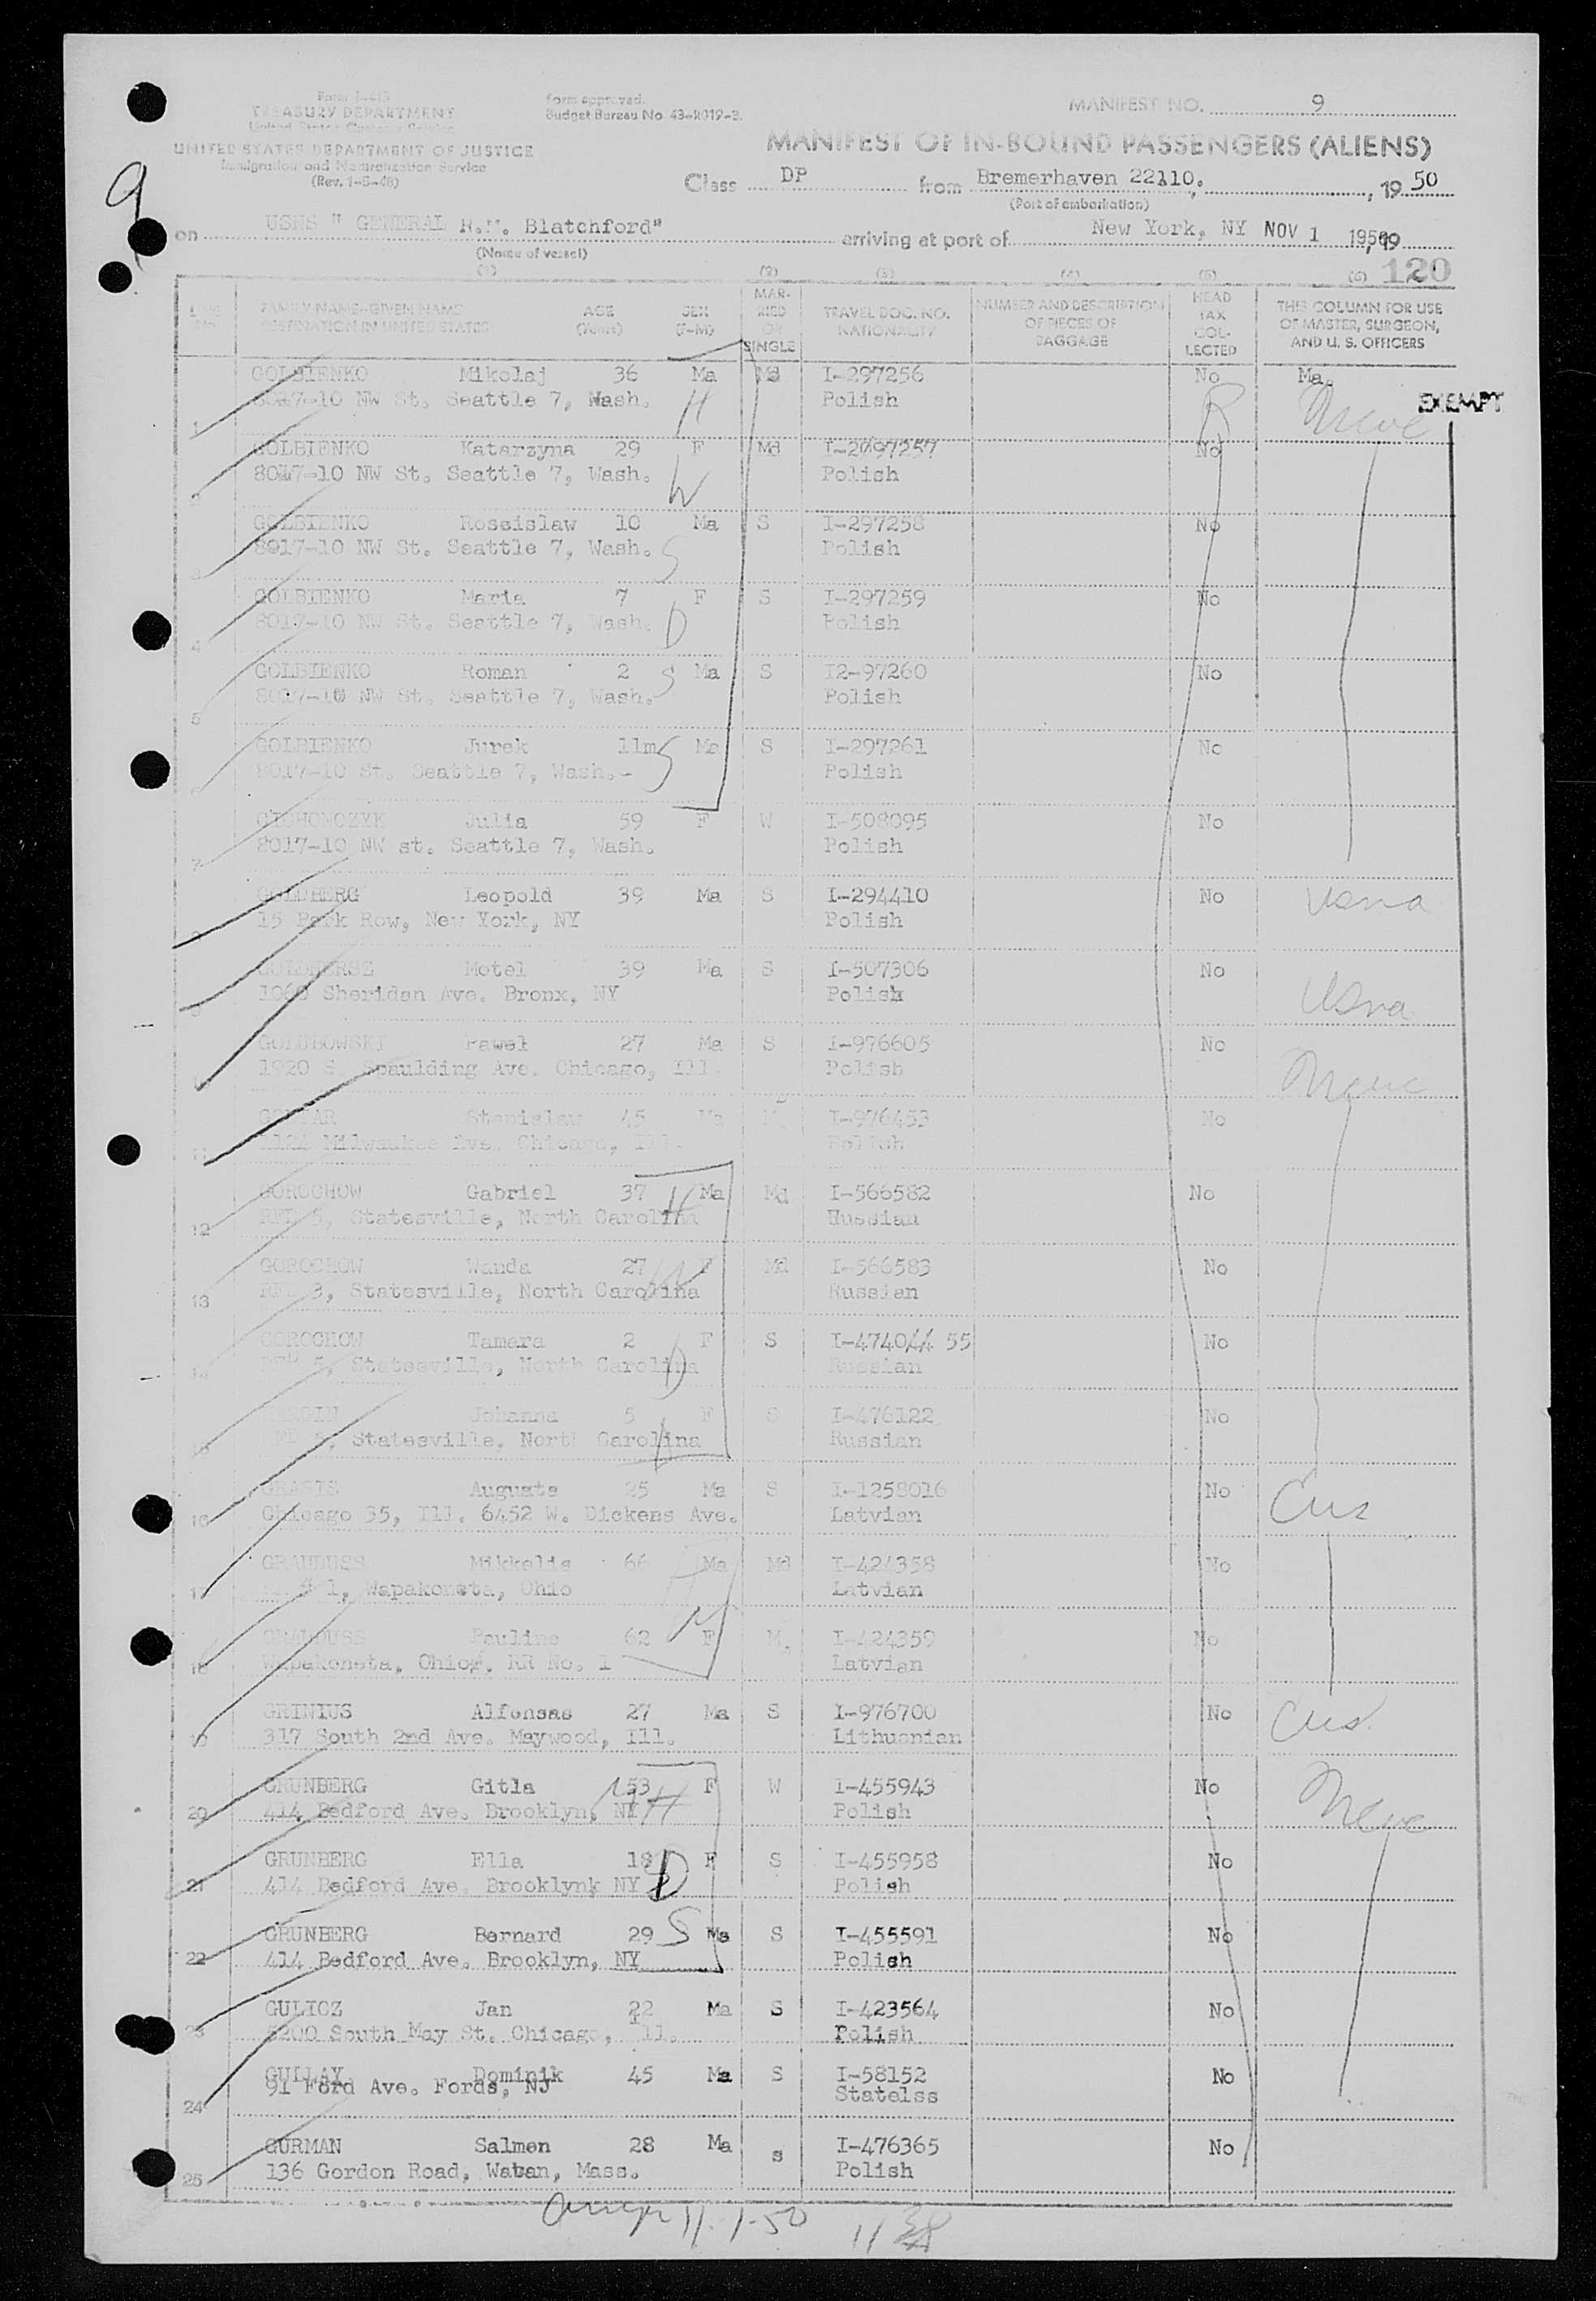 Form I-415
TREASURY DEPARTMENT
United States Customs Service
UNITED STATES DEPARTMENT OF JUSTICE
Immigration and Naturalization Service
(Rev. 1-5-48)
Form approved.
Budget Bureau No. 43-R019-3.
MANIFEST NO. 9
MANIFEST OF IN-BOUND PASSENGERS (ALIENS)
9
Class DP from Bremerhaven 22110. , 19 50
(Port of embarkation)
on USNS " GENERAL R.M. Blatchford" arriving at port of New York, NY NOV 1 1950, 19
(Name of vessel)
(1) (2) (3) (4) (5) (6) 120
LINE No. FAMILY NAME-GIVEN NAME DESTINATION IN UNITED STATES AGE (Years) SEX (F-M) MARRIED OR SINGLE TRAVEL DOC. NO. NATIONALITY NUMBER AND DESCRIPTION OF PIECES OF BAGGAGE HEAD TAX COLLECTED THIS COLUMN FOR USE OF MASTER, SURGEON, AND U. S. OFFICERS
1 GOLBIENKO Mikolaj 36 Ma Md I-297256 No Ma.
8017-10 NW St. Seattle 7, Wash. H Polish R EXEMPT
2 GOLBIENKO Katarzyna 29 F Md I-2097257 No
8017-10 NW St. Seattle 7, Wash. W Polish
3 GOLBIENKO Roscislaw 10 Ma S I-297258 No
8017-10 NW St. Seattle 7, Wash. S Polish
4 GOLBIENKO Maria 7 F S I-297259 No
8017-10 NW St. Seattle 7, Wash. D Polish
5 GOLBIENKO Roman 2 S Ma S I2-97260 No
8017-10 NW St. Seattle 7, Wash. Polish
6 GOLBIENKO Jurek 11m S Ma S I-297261 No
8017-10 St. Seattle 7, Wash.- Polish
7 Julia 59 F W I-508095 No
8017-10 NW st. Seattle 7, Wash. Polish
8 GOLDBERG Leopold 39 Ma S I-294410 No
15 Park Row, New York, NY Polish
9 Motel 39 Ma S I-507306 No
1068 Sheridan Ave. Bronx, NY Polish
10 Pawel 27 Ma S I-976605 No
1920 S. Spaulding Ave. Chicago, Ill. Polish
11 Stanislaw 45 Ma I-976453 No
Milwaukee Ave. Chicago, Ill. Polish
12 GOROCHOW Gabriel 37 H Ma Md I-566582 No
RFD 3, Statesville, North Carolina Russian
13 GOROCHOW Wanda 27 W F Md I-566583 No
RFD 3, Statesville, North Carolina Russian
14 GOROCHOW Tamara 2 F S I-474044 55 No
RFD 3, Statesville, North Carolina D Russian
15 Johanna 5 F S I-476122 No
RFD 3, Statesville, North Carolina Russian
16 Augusts 25 Ma S I-1258016 No Cus
Chicago 35, Ill. 6452 W. Dickens Ave. Latvian
17 GRAUDUSS Mikkelis 66 Ma Md I-424358 No
1, Wapakoneta, Ohio Latvian
18 GRAUDUSS Pauline 62 W F M. I-424359 No
Wapakoneta, Ohio, RR No. 1 Latvian
19 GRINIUS Alfonsas 27 Ma S I-976700 No Cus.
317 South 2nd Ave. Maywood, Ill. Lithuanian
20 GRUNBERG Gitla 53 F W I-455943 No
414 Bedford Ave. Brooklyn, NY H Polish
21 GRUNBERG Ella 18 F S I-455958 No
414 Bedford Ave. Brooklynk NY D Polish
22 GRUNBERG Bernard 29 S Ma S I-455591 No
414 Bedford Ave. Brooklyn, NY Polish
23 GULICZ Jan 22 Ma S I-423564 No
5200 South May St. Chicago, Ill. Polish
24 GULLAY Dominik 45 Ma S I-58152 No
91 Ford Ave. Fords, NJ Statelss
25 GURMAN Salmen 28 Ma s I-476365 No
136 Gordon Road, Waban, Mass. Polish
11-1-50